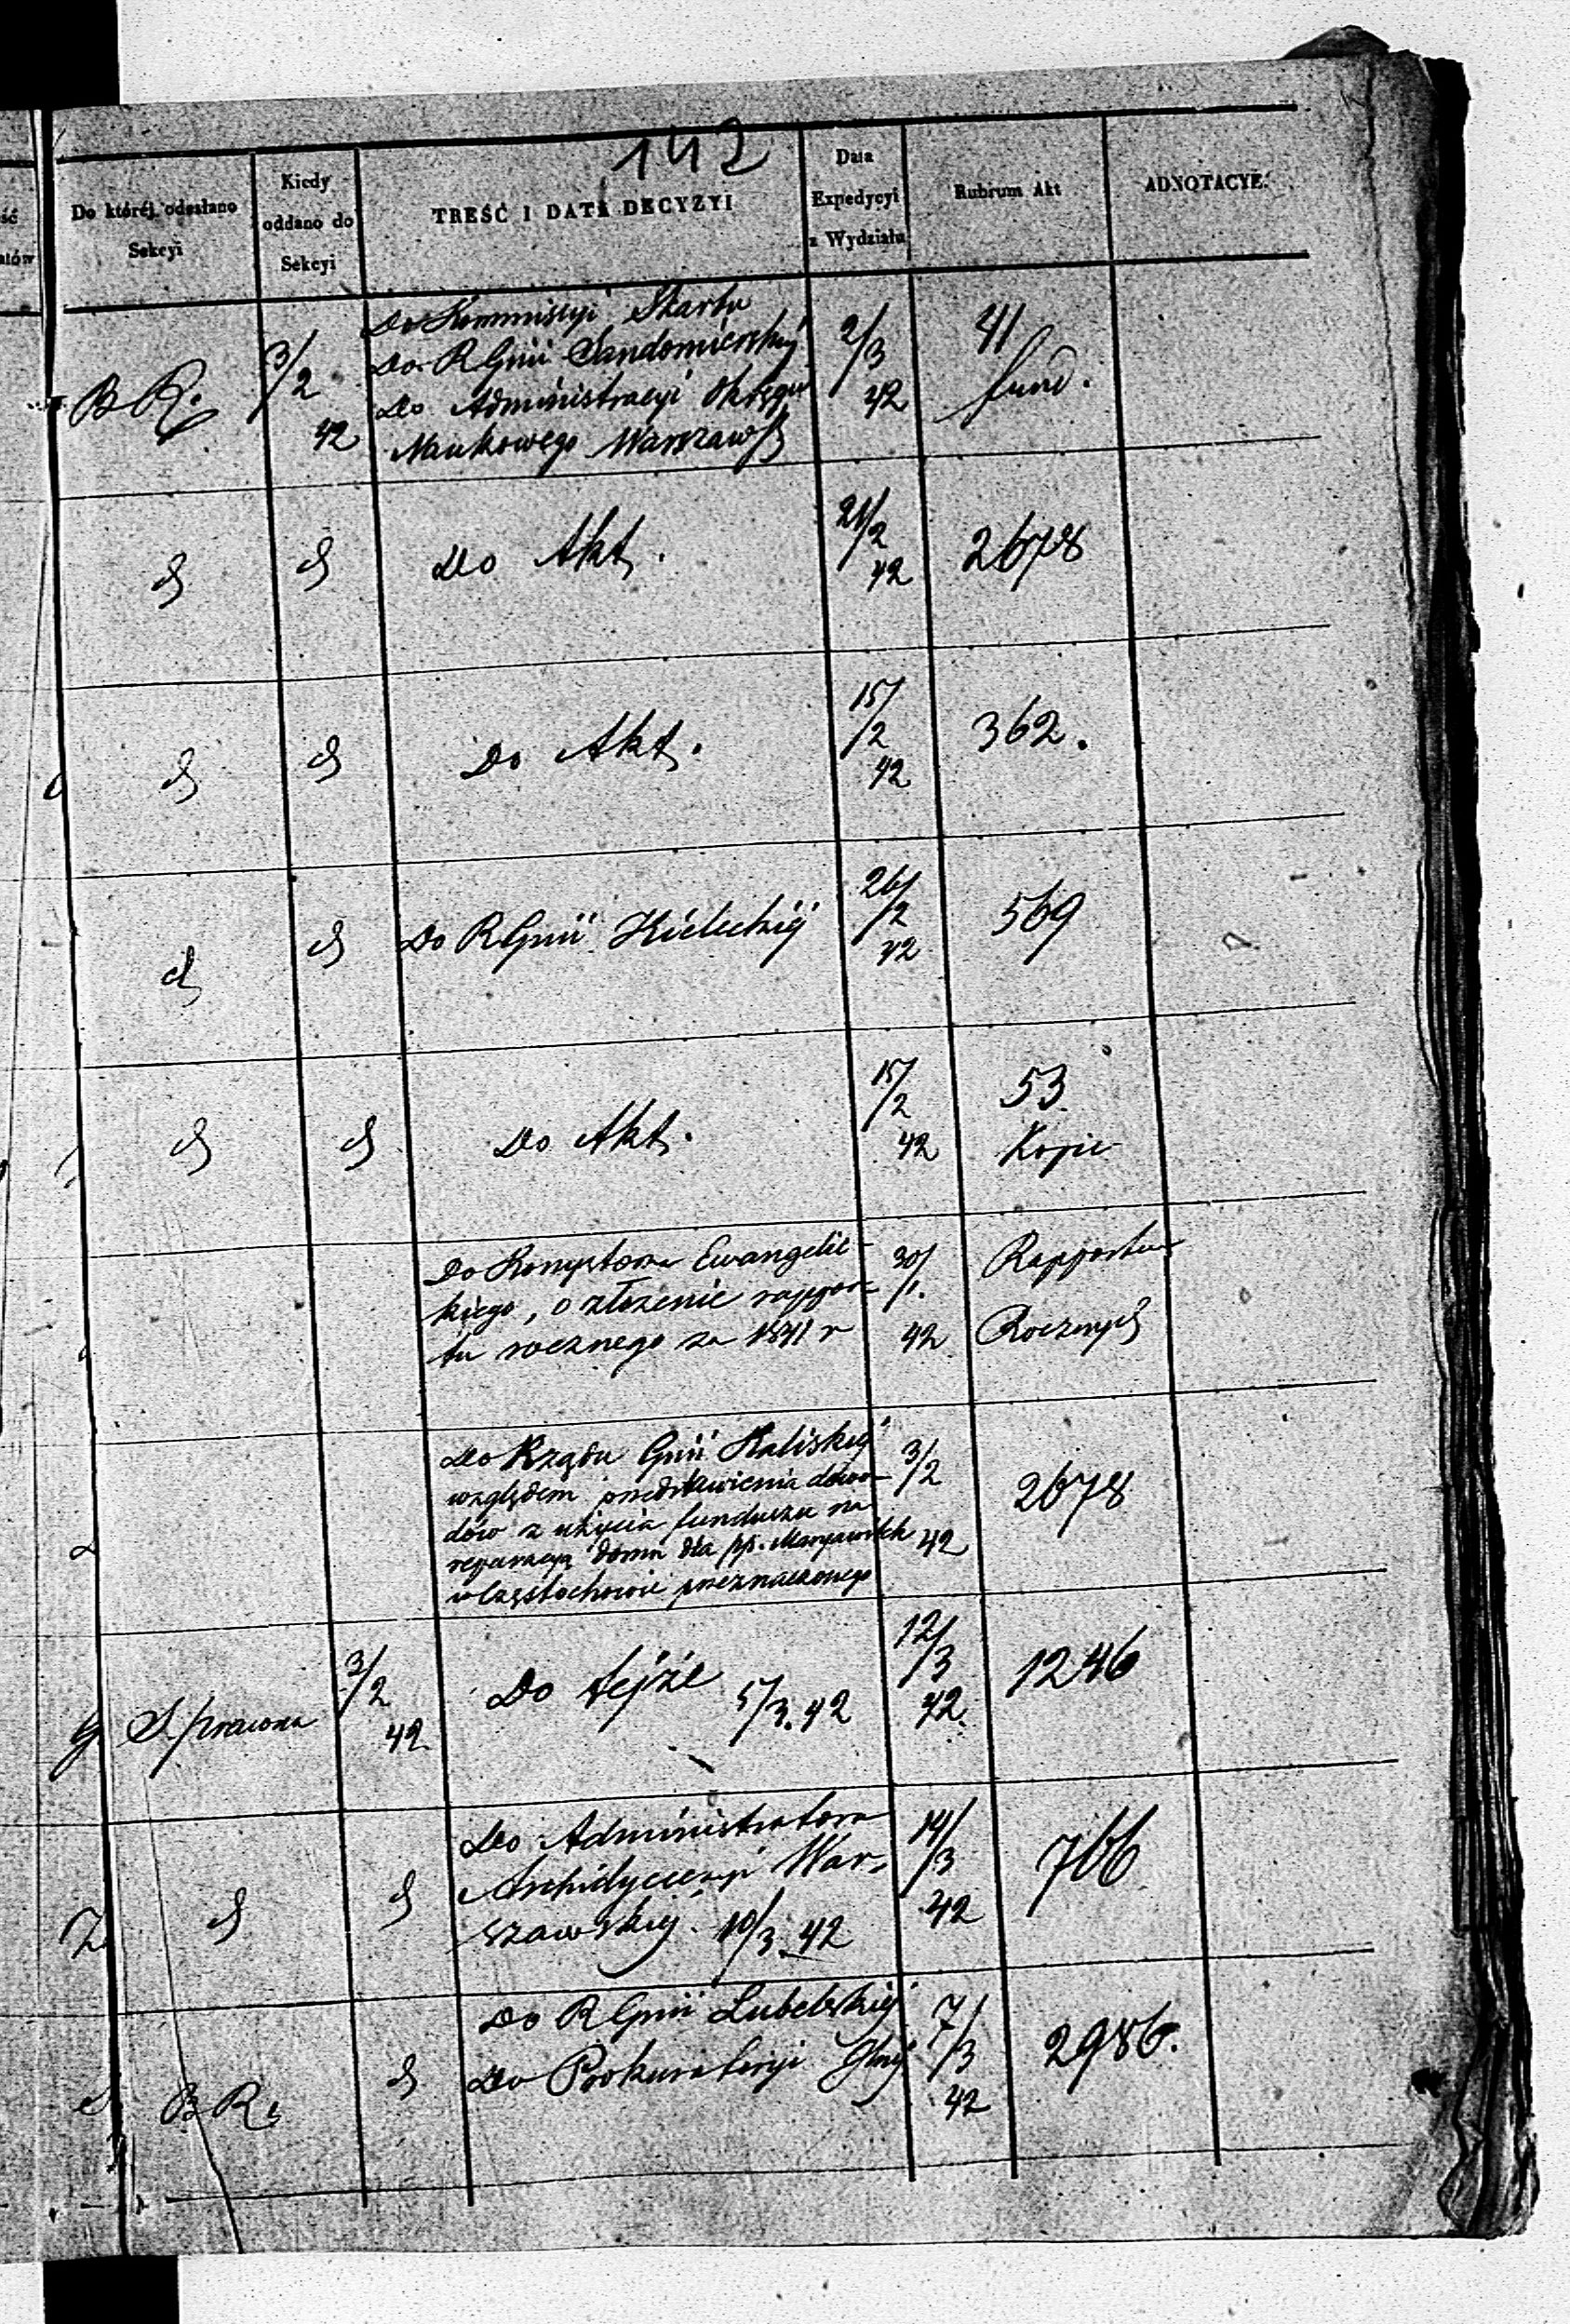 142
Do której odesłano Sekcyi
Kiedy oddano do Sekcyi
TREŚĆ I DATA DECYZYI
Data Expedycyi z Wydziału
Rubrum Akt
ADNOTACYE.
B R.
3/2 42
Do Kommissyi Skarbu
Do R Gnii Sandomierskiej
Do Administracyi Okręgu
Naukowego Warszaws
2/3 42
41
fund.
Do Akt.
21/2 42
2678
Do Akt.
15/2 42
362.
Do R Gnii Kieleckiej
26/2 42
569
Do Akt.
15/2 42
53
Kopie
Do Konsystorza Ewangelic-
kiego, o złożenie rappor-
tu rocznego za 1841 r
30/1. 42
Rapportów
Rocznych
Do Rządu Gnii Kaliskiej
względem przedstawienia dowo-
dów z użycia funduszu na
reparacyą domu dla pp. Maryawitek
w Częstochowie przeznaczonego
3/2 42
2678
S. prawna
3/2 42
Do tejże 5/3. 42
12/3 42
1246
Do Administratora
Archidyecezyi War-
szawskiej. 10/3. 42
14/3 42
766
B R.
Do R Gnii Lubelskiej
Do Prokuratoryi Glnej
7/3 42
2986.